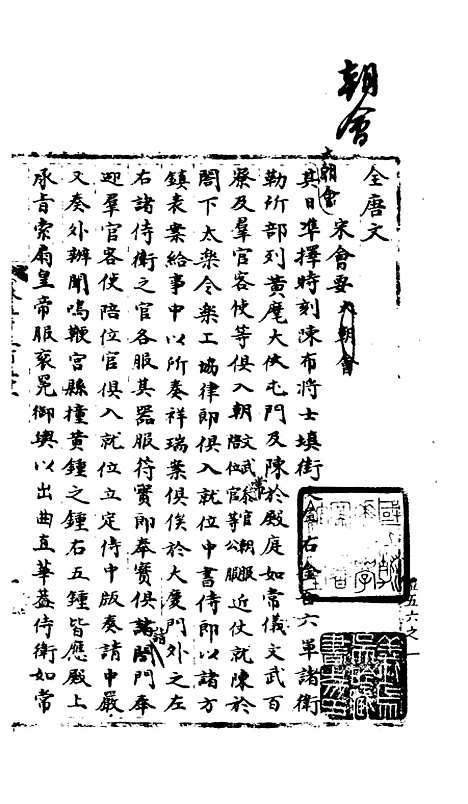 朝會
全唐文
宋會要 大朝會
大朝會
其日準擇時刻陳布將士填街 右金吾六軍諸衛
勒所部列黃麾大仗屯門及陳於殿庭如常儀文武百
寮及羣官客使等俱入朝文武常參官朝服陪位官等公服近仗就陳於
閤下太樂令樂工協律郎俱入就位中書侍郎以諸方
鎮表案給事中以所奏祥瑞案俱俟於大慶門外之左
右諸侍衛之官各服其器服符寶郎奉寶俱詣閤門奉
迎羣官客使陪位官俱入就位立定侍中版奏請中嚴
又奏外辦聞鳴鞭宮縣撞黃鍾之鍾右五鍾皆應殿上
承旨索扇皇帝服袞冕御輿以出曲直華蓋侍衛如常
禮五六之一